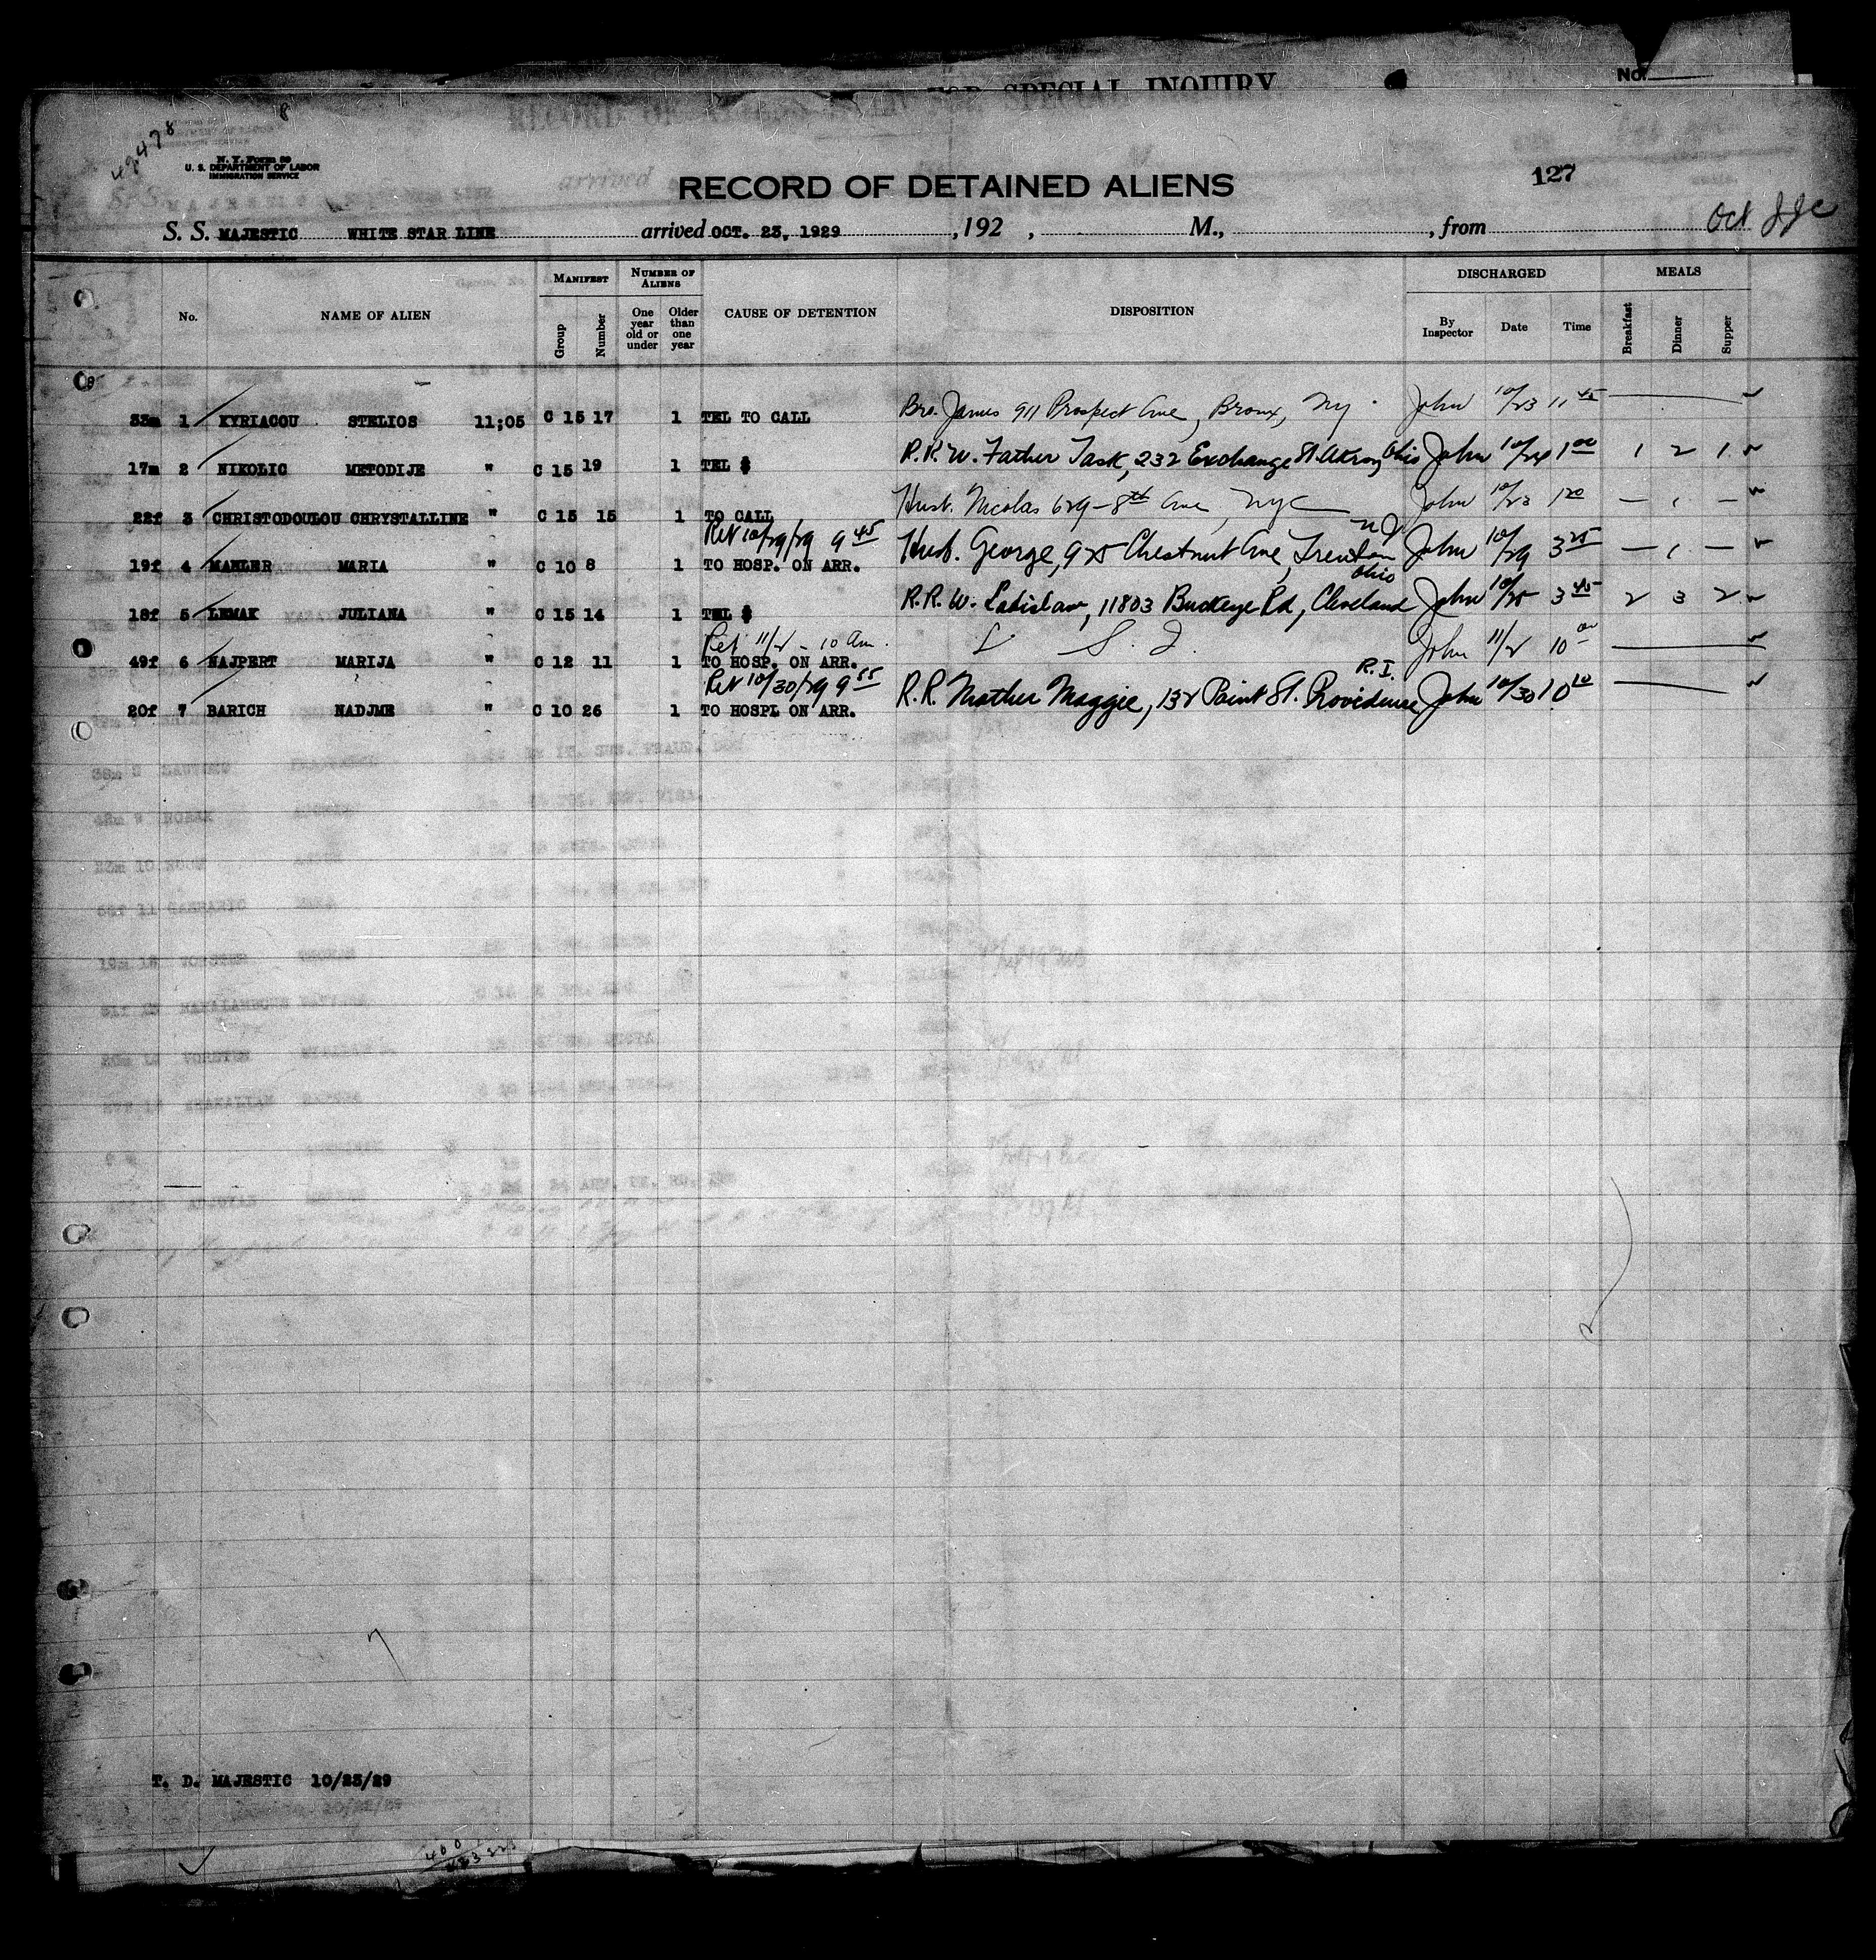 FOR SPECIAL INQUIRY
No.
49478
8
N. Y. Form 99
U. S. DEPARTMENT OF LABOR
IMMIGRATION SERVICE
RECORD OF DETAINED ALIENS
127
S. S. MAJESTIC WHITE STAR LINE arrived OCT. 23, 1929, 192 , M., , from Oct
MANIFEST NUMBER OF ALIENS DISCHARGED MEALS
No. NAME OF ALIEN Group Number One year old or under Older than one year CAUSE OF DETENTION DISPOSITION By Inspector Date Time Breakfast Dinner Supper
33m 1 KYRIACOU STELIOS 11;05 C 15 17 1 TEL TO CALL Bro. James 911 Prospect Ave, Bronx, NY John 10/23 11 45
17m 2 NIKOLIC METODIJE " C 15 19 1 TEL $ R.R.W. Father Task, 232 Exchange St. Akron, Ohio John 10/24 1 00 1 2 1
22f 3 CHRISTODOULOU CHRYSTALLINE " C 15 15 1 TO CALL Husb. Nicolas 629-8th Ave, NYC John 10/23 1 20 — 1 —
Ret 10/29/29 9 45
19f 4 MAHLER MARIA " C 10 8 1 TO HOSP. ON ARR. Husb. George, 925 Chestnut Ave, Trenton NJ John 10/29 3 25 — 1 —
18f 5 LEMAK JULIANA " C 15 14 1 TEL $ R.R.W. Ladislaw, 11803 Buckeye Rd, Cleveland Ohio John 10/25 3 45 2 3 2
Ret 11/2 - 10 am.
49f 6 NAJPERT MARIJA " C 12 11 1 TO HOSP. ON ARR. S. I. John 11/2 10 00
Ret 10/30/29 9 55
20f 7 BARICH NADJME " C 10 26 1 TO HOSPL ON ARR. R.R. Mother Maggie, 132 Point St. Providence R.I. John 10/30 10 10
T. D. MAJESTIC 10/23/29